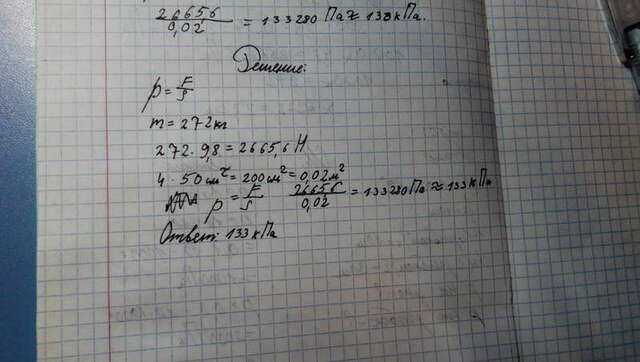 26656/0,02 = 133280 Па ≈ 133 кПа.
Решение:
p = F/S
m = 272 кг
272 · 9,8 = 2665,6 Н
4 · 50 см² = 200 см² = 0,02 м²
p = F/S 26656/0,02 = 133280 Па ≈ 133 кПа
Ответ: 133 кПа